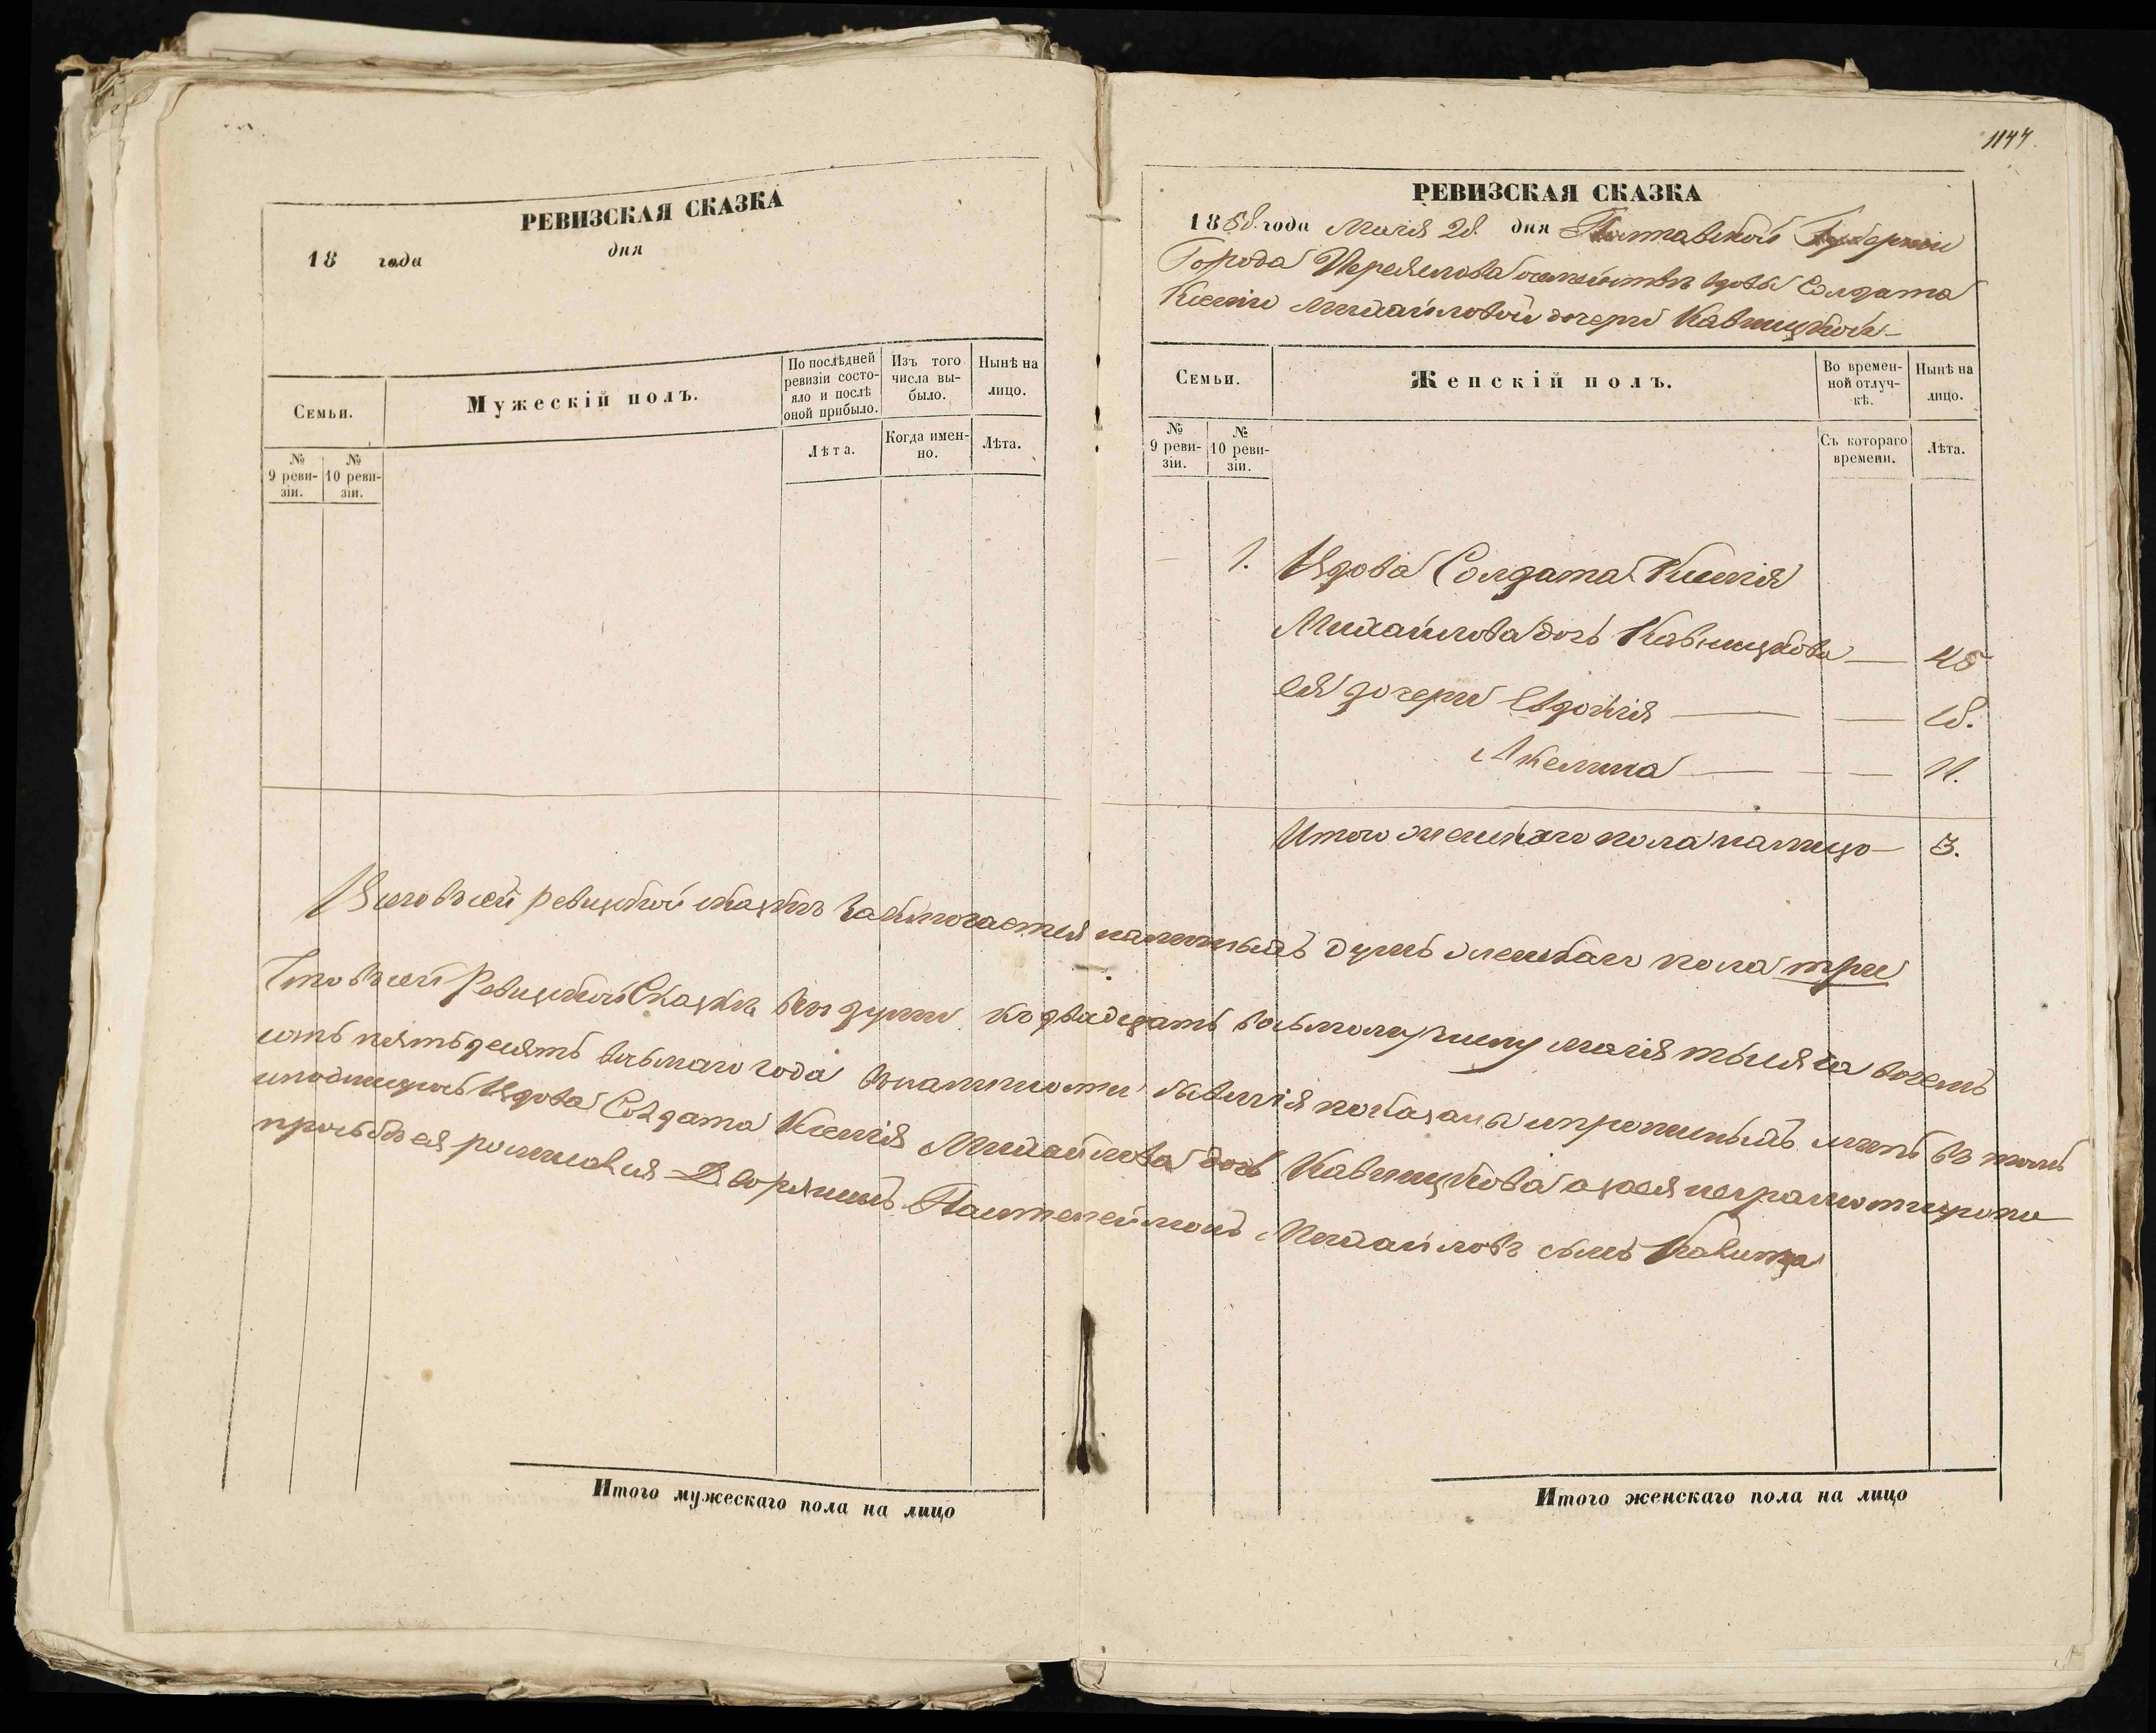 РЕВИЗСКАЯ СКАЗКА
18 года дня
Семьи.
Мужескій полъ.
По послѣдней ревизіи состояло и послѣ оной прибыло.
Изъ того числа выбыло.
Нынѣ на лицо.
№ 9 ревизіи.
№ 10 ревизіи.
Лѣта.
Когда именно.
Лѣта.
1144.
РЕВИЗСКАЯ СКАЗКА
1858. года Маія 28. дня Полтавской Губерніи
Города Переяслова о семействѣ вдовы Солдата
Ксеніи Михайловой дочери Кавницкой
Семьи.
Женскій полъ.
Во временной отлучкѣ.
Нынѣ на лицо.
№ 9 ревизіи.
№ 10 ревизіи.
Съ котораго времени.
Лѣта.
1. Вдова Солдата Ксенія
Михайлова дочь Кавницкова — 45
ея дочери Евдокія — — 18.
Акелина — — — 11.
Итого женскаго пола налицо — 3.
Всего въ сей ревизской сказкѣ заключается наличныхъ душъ женскаго пола три
Что въ сей Ревизской Сказкѣ всѣ души къ двадцать восьмому числу маія тысяча восемь
сотъ пятьдесятъ восьмаго года въ наличности бывшія показаны и прописныхъ нѣтъ въ томъ
и подпишусь Вдова Солдата Ксенія Михайлова дочь Кавницкова а за ея неграмотную по
прозьбѣ ея росписался Дворянинъ Пантелеймонъ Михайловъ сынъ Кавница
Итого мужескаго пола на лицо
Итого женскаго пола на лицо